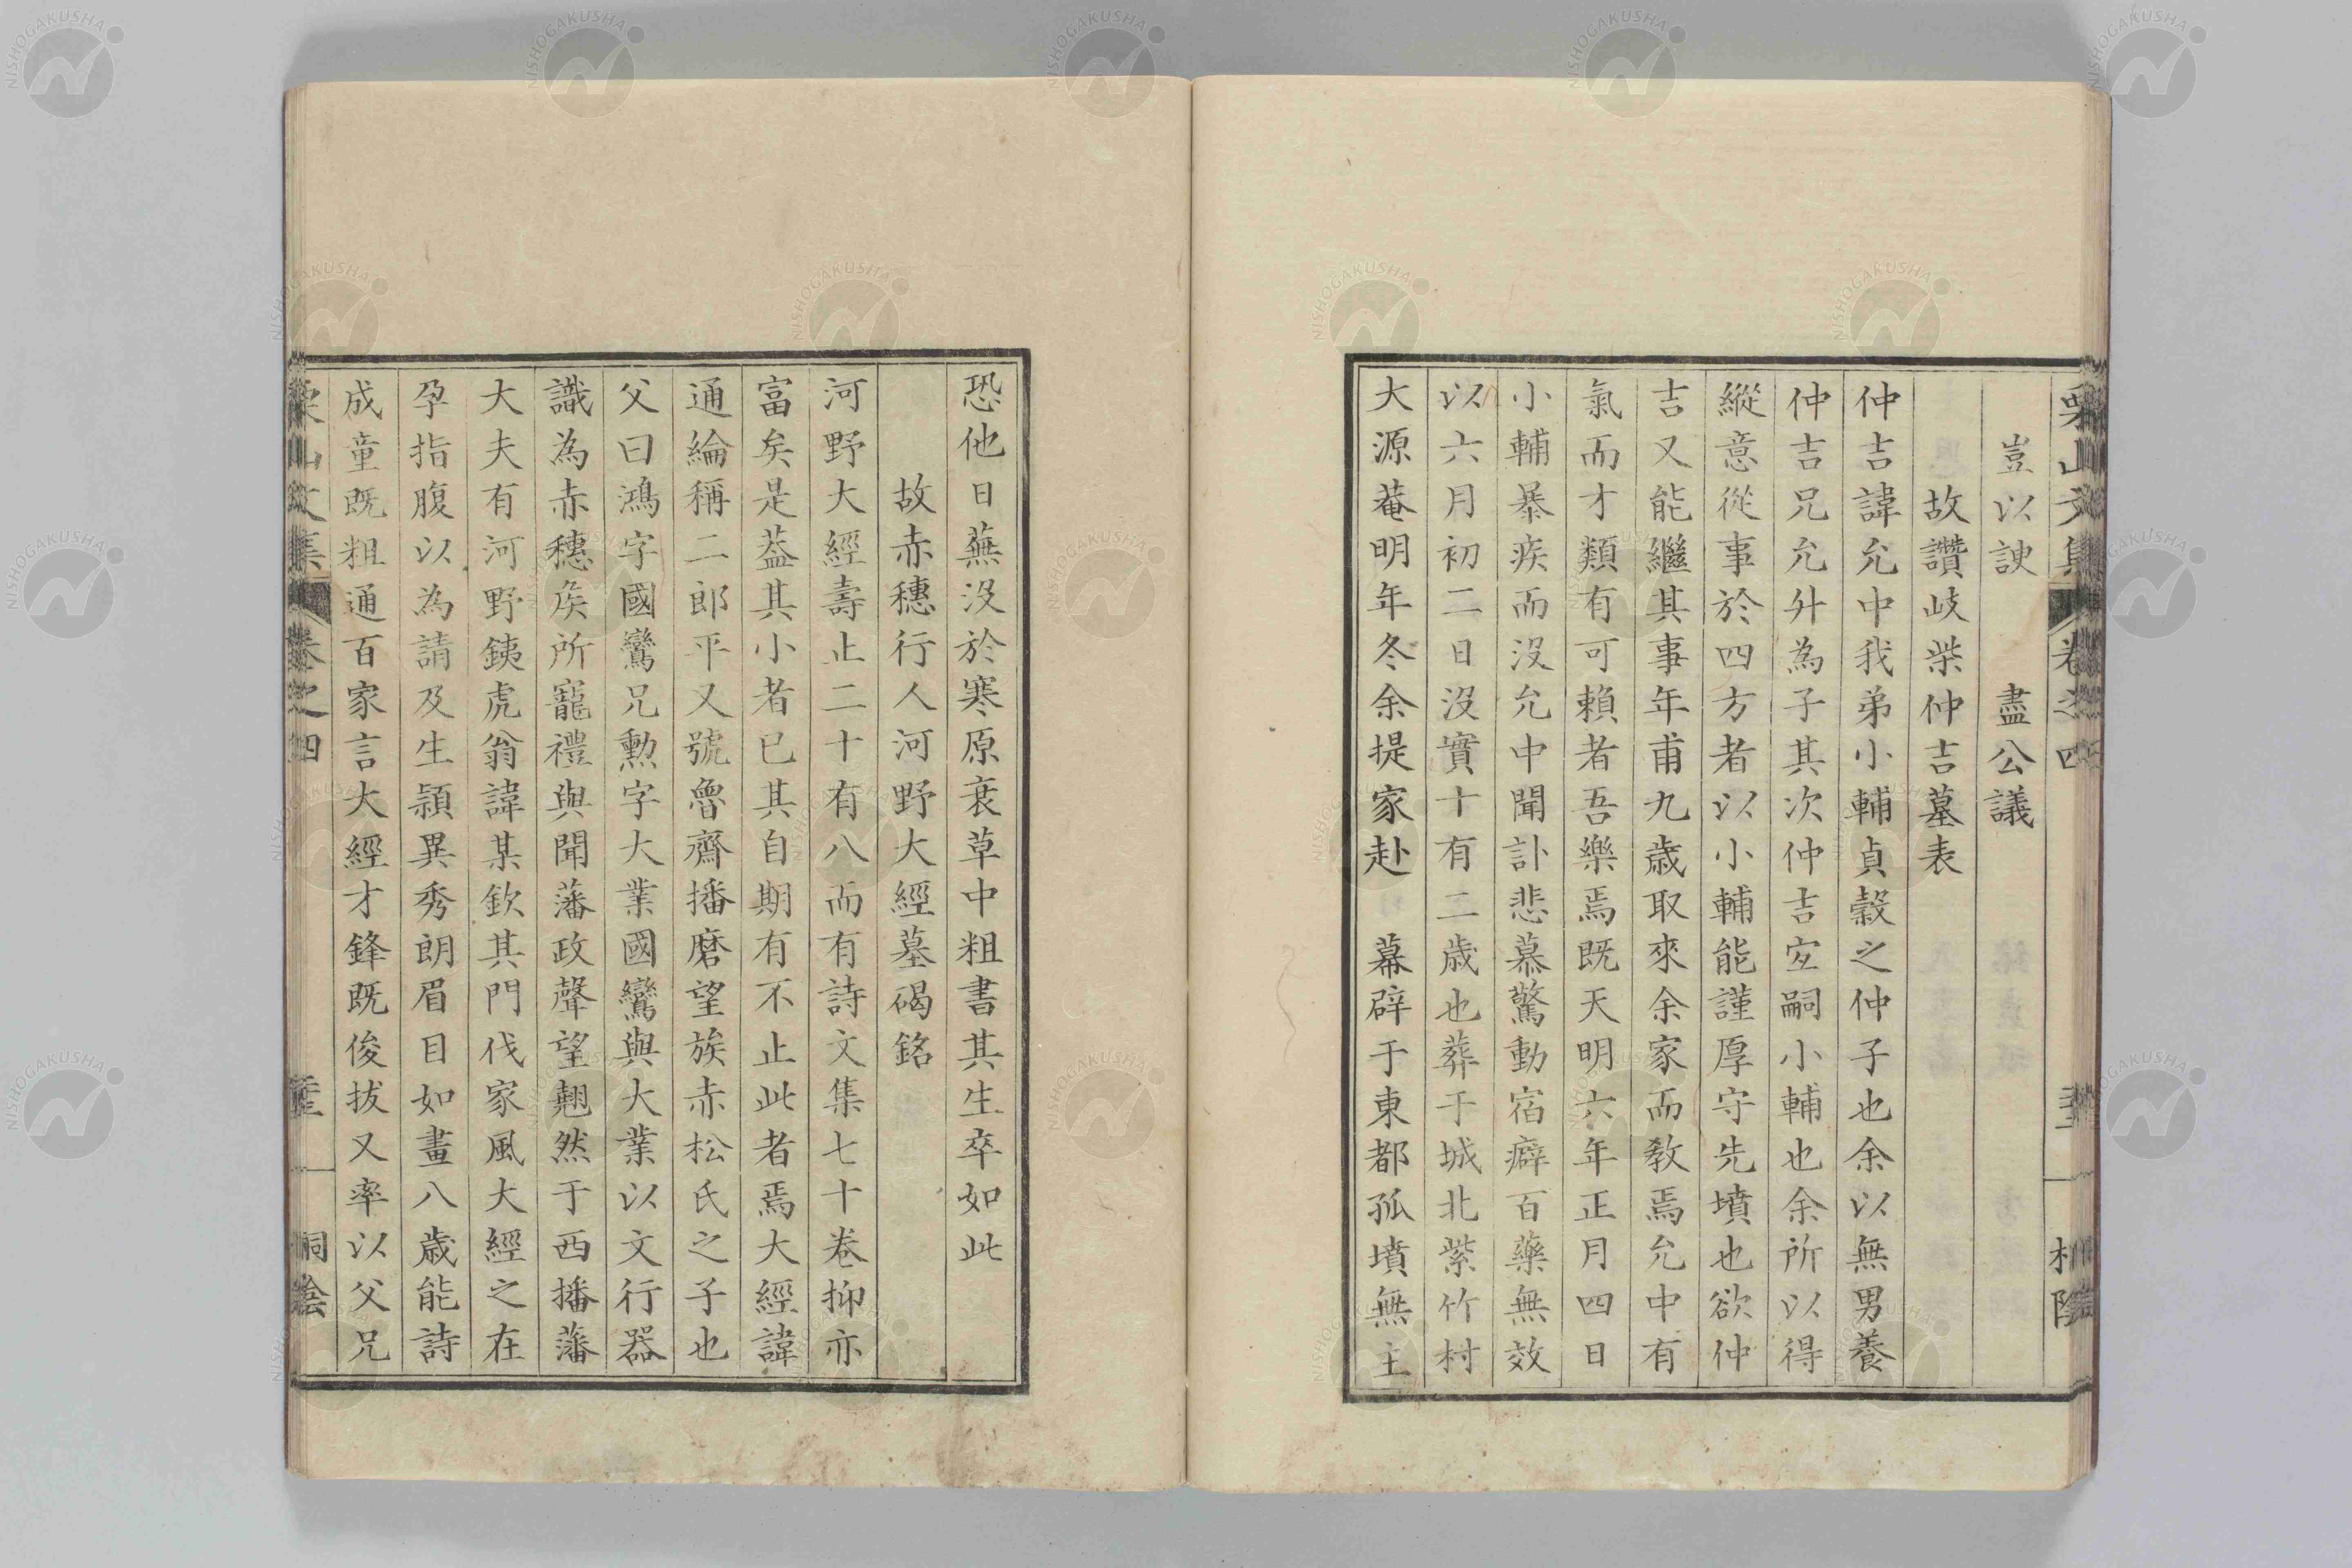 栗山文集 卷之四 桐陰
豈以諛 盡公議
故讚岐柴仲吉墓表
仲吉諱允中我弟小輔貞穀之仲子也余以無男養
仲吉兄允升為子其次仲吉宜嗣小輔也余所以得
縱意從事於四方者以小輔能謹厚守先墳也欲仲
吉又能繼其事年甫九歲取來余家而教焉允中有
氣而才類有可賴者吾樂焉既天明六年正月四日
小輔暴疾而沒允中聞訃悲慕驚動宿癖百藥無效
以六月初二日沒實十有二歲也葬于城北紫竹村
大源菴明年冬余提家赴 幕辟于東都孤墳無主
恐他日蕪沒於寒原衰草中粗書其生卒如此
故赤穗行人河野大經墓碣銘
河野大經壽止二十有八而有詩文集七十卷抑亦
富矣是葢其小者已其自期有不止此者焉大經諱
通綸稱二郎平又號魯齋播磨望族赤松氏之子也
父曰鴻字國鸞兄勲字大業國鸞與大業以文行器
識為赤穗矦所寵禮與聞藩政聲望翹然于西播藩
大夫有河野銕虎翁諱某欽其門伐家風大經之在
孕指腹以為請及生頴異秀朗眉目如畫八歲能詩
成童既粗通百家言大經才鋒既俊拔又率以父兄
栗山文集 卷之四 桐陰
NISHOGAKUSHA